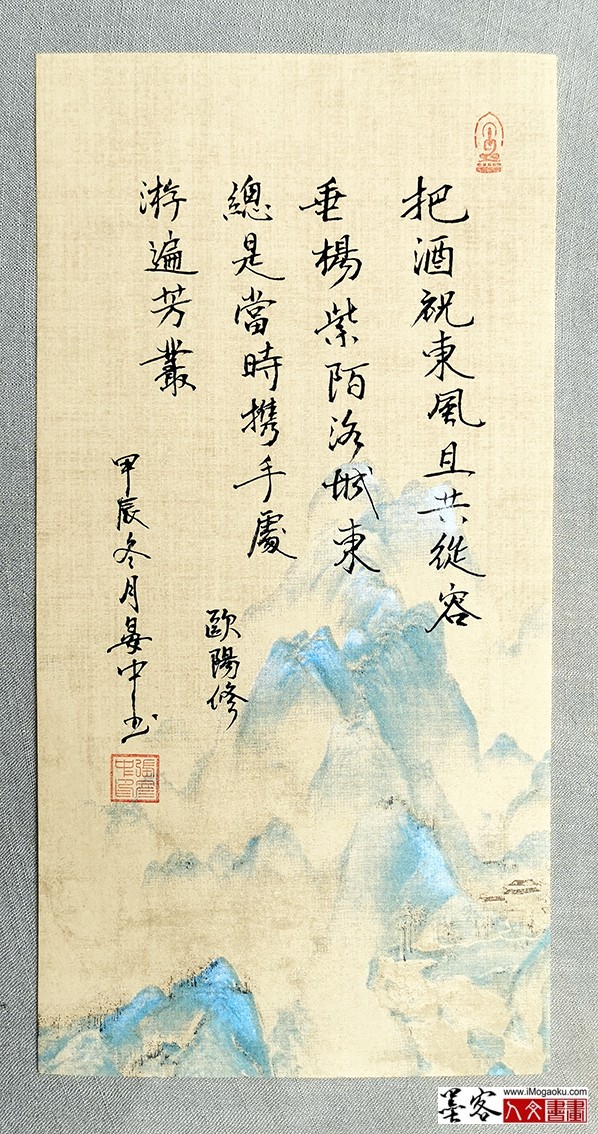 把酒祝東風且共從容
垂楊紫陌洛城東
總是當時携手處
游遍芳叢
歐陽修
甲辰冬月晏中书
墨客
www.iMogaoku.com
人文書畫